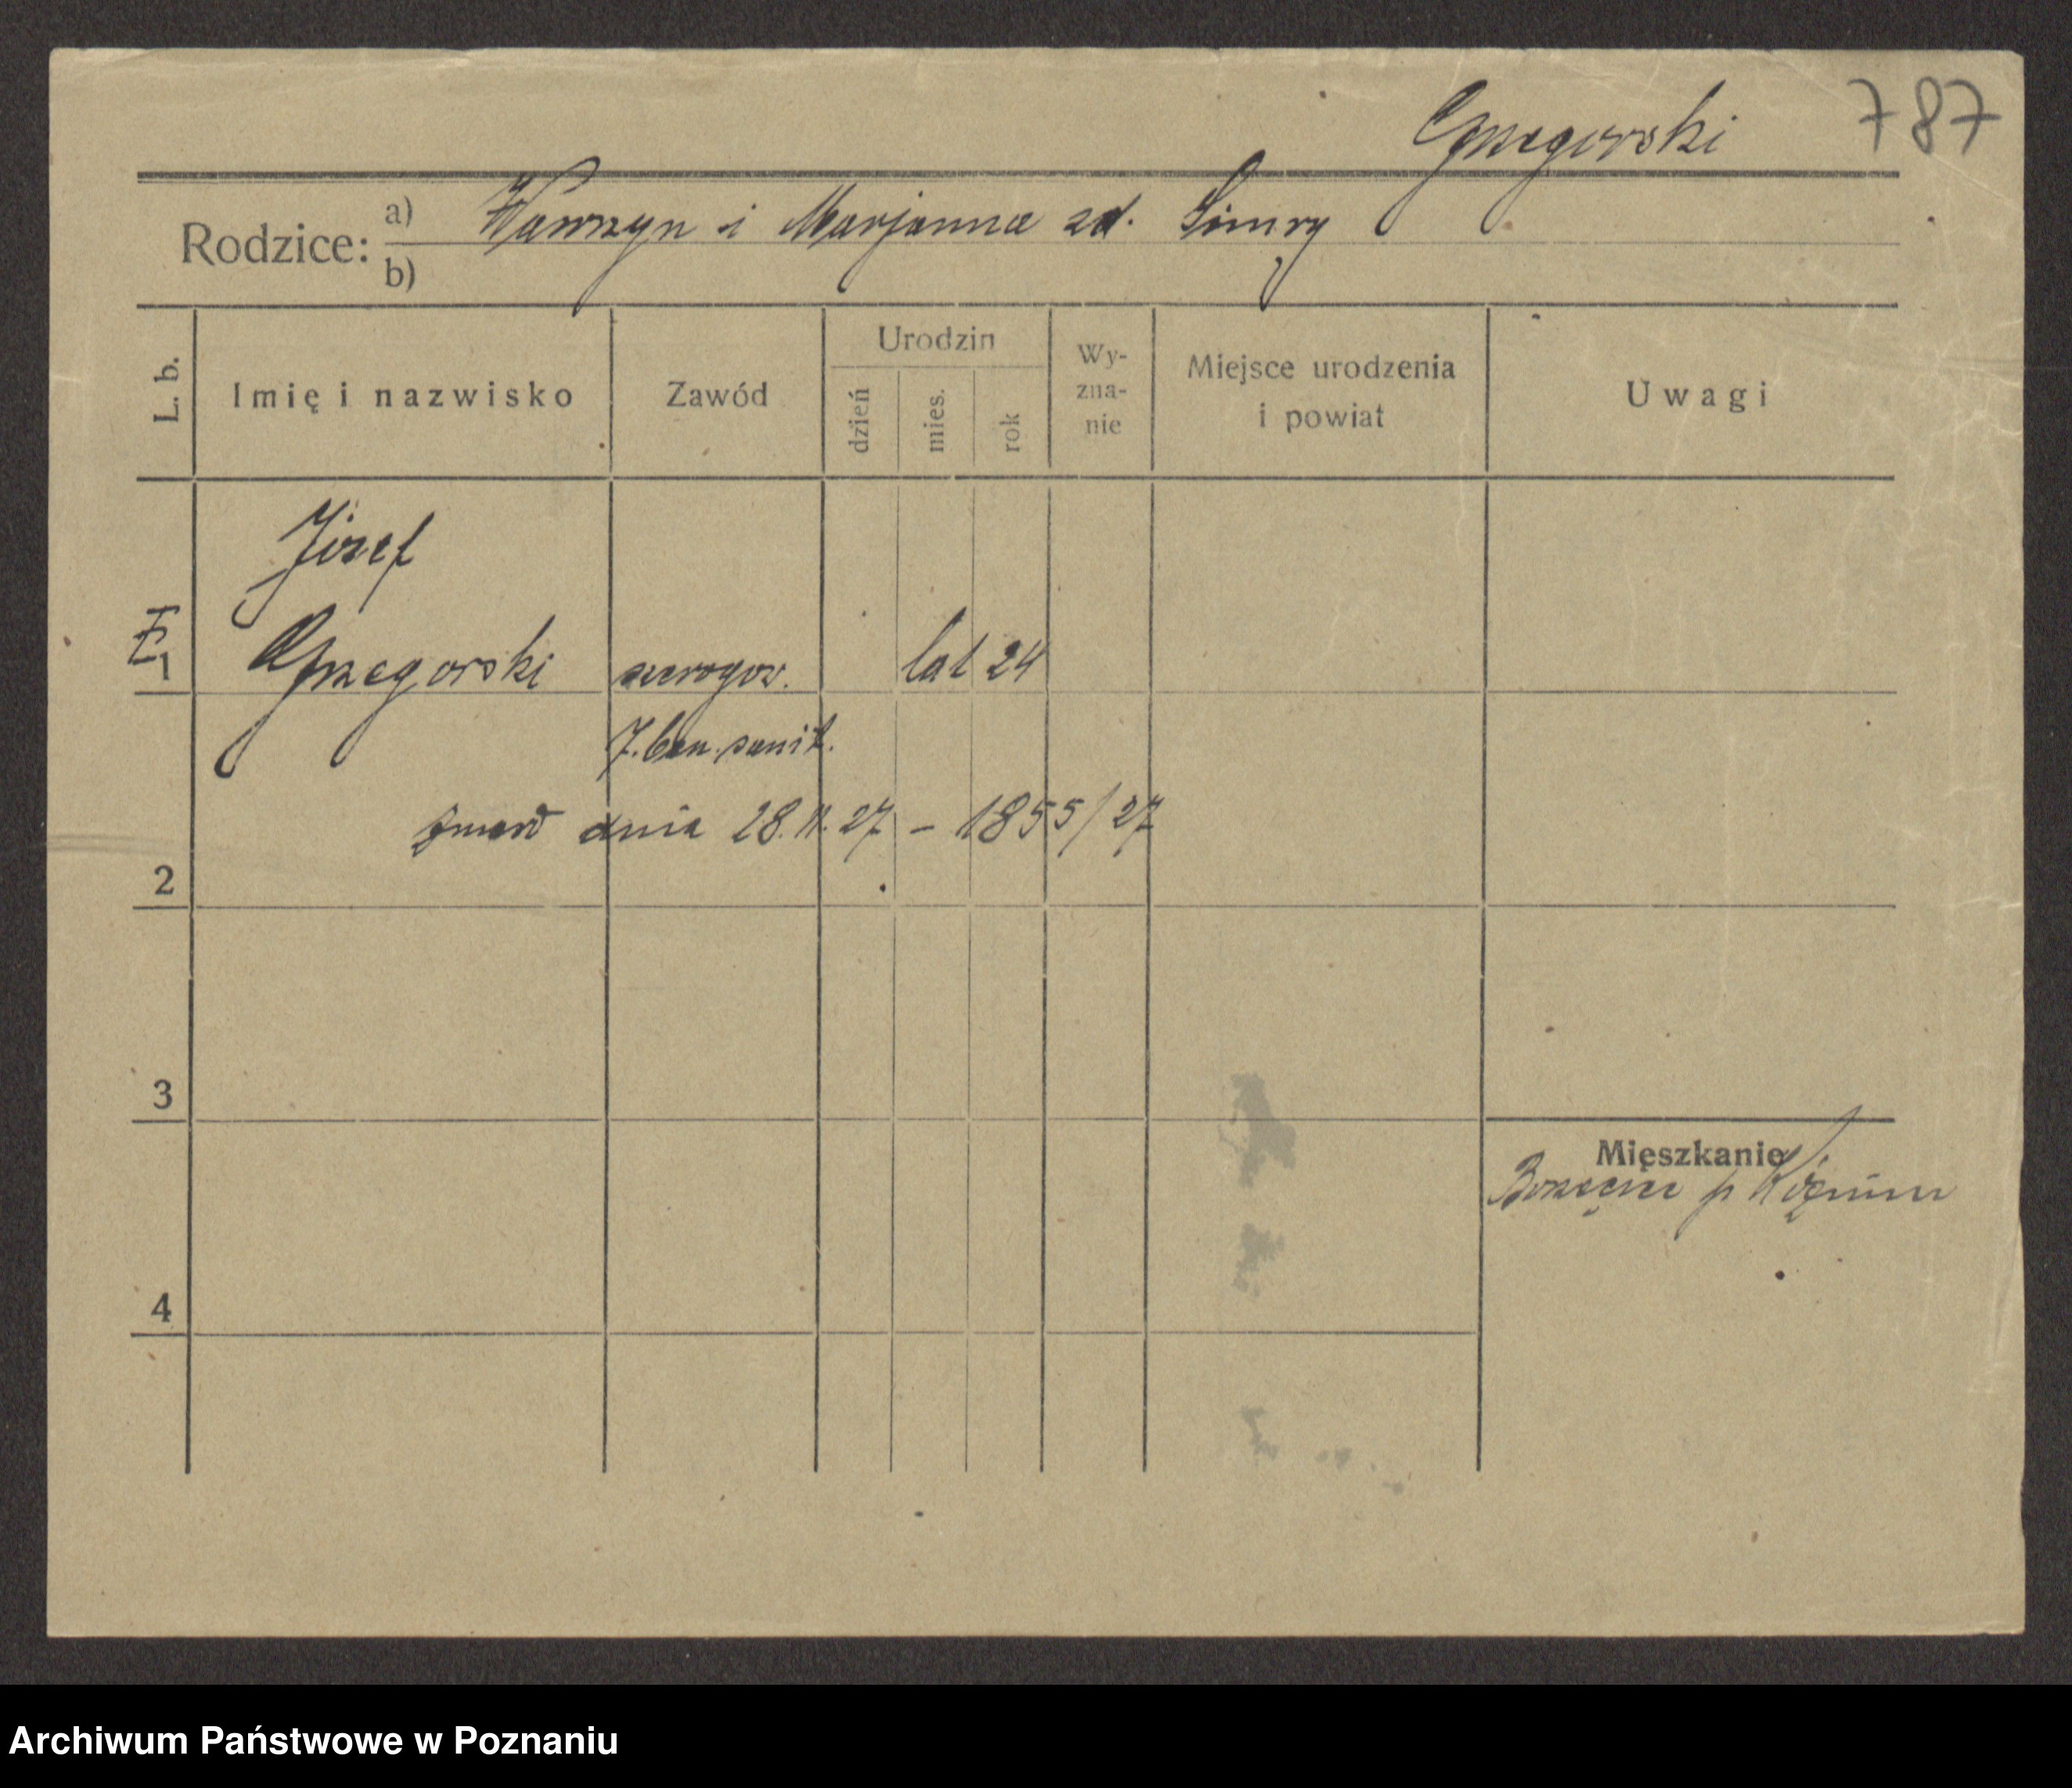 787
Grzegorski
Rodzice: a) Wawrzyn i Marjanna zd.
b)
L. b.
Imię i nazwisko
Zawód
Urodzin
dzień
mies.
rok
Wy-
zna-
nie
Miejsce urodzenia
i powiat
Uwagi
Józef
1 Grzegorski szeregow. lat 24
7. baon. sanit.
zmarł dnia 28. 11. 27 – 1855/27
2
3
Mieszkanie
4
Archiwum Państwowe w Poznaniu